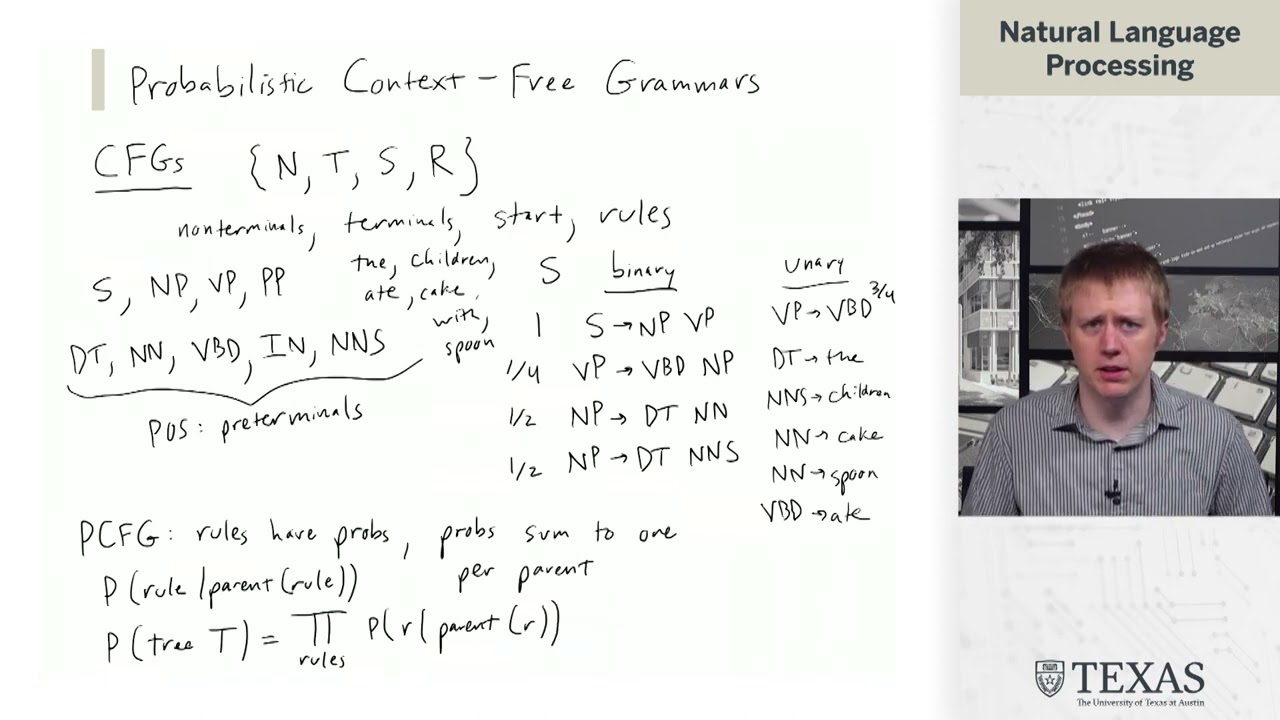 Probabilistic Context-Free Grammars
CFGs {N, T, S, R}
nonterminals, terminals, start, rules
S, NP, VP, PP
DT, NN, VBD, IN, NNS
POS: preterminals
the, children,
ate, cake,
with,
spoon
S
binary
1 S → NP VP
1/4 VP → VBD NP
1/2 NP → DT NN
1/2 NP → DT NNS
unary
VP → VBD 3/4
DT → the
NNS → children
NN → cake
NN → spoon
VBD → ate
PCFG: rules have probs, probs sum to one
per parent
P(rule | parent(rule))
P(tree T) = ∏ P(r | parent(r))
rules
Natural Language
Processing
TEXAS
The University of Texas at Austin